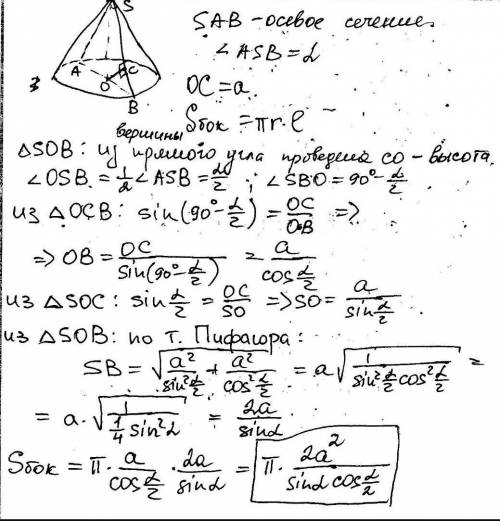 S
SAB - осевое сечение
∠ASB = α
A
C
O
OC = a
B
Sбок = πr·l
вершины
△SOB: из прямого угла проведена CO - высота.
∠OSB = 1/2 ∠ASB = α/2; ∠SBO = 90° - α/2
из △OCB: sin(90° - α/2) = OC/OB =>
=> OB = OC/sin(90° - α/2) = a/cos α/2
из △SOC: sin α/2 = OC/SO => SO = a/sin α/2
из △SOB: по т. Пифагора:
SB = √(a²/sin² α/2 + a²/cos² α/2) = a√(1/(sin² α/2 cos² α/2)) =
= a·√(1/(1/4 sin² α)) = 2a/sin α
Sбок = π · a/cos α/2 · 2a/sin α = π · 2a²/(sin α cos α/2)